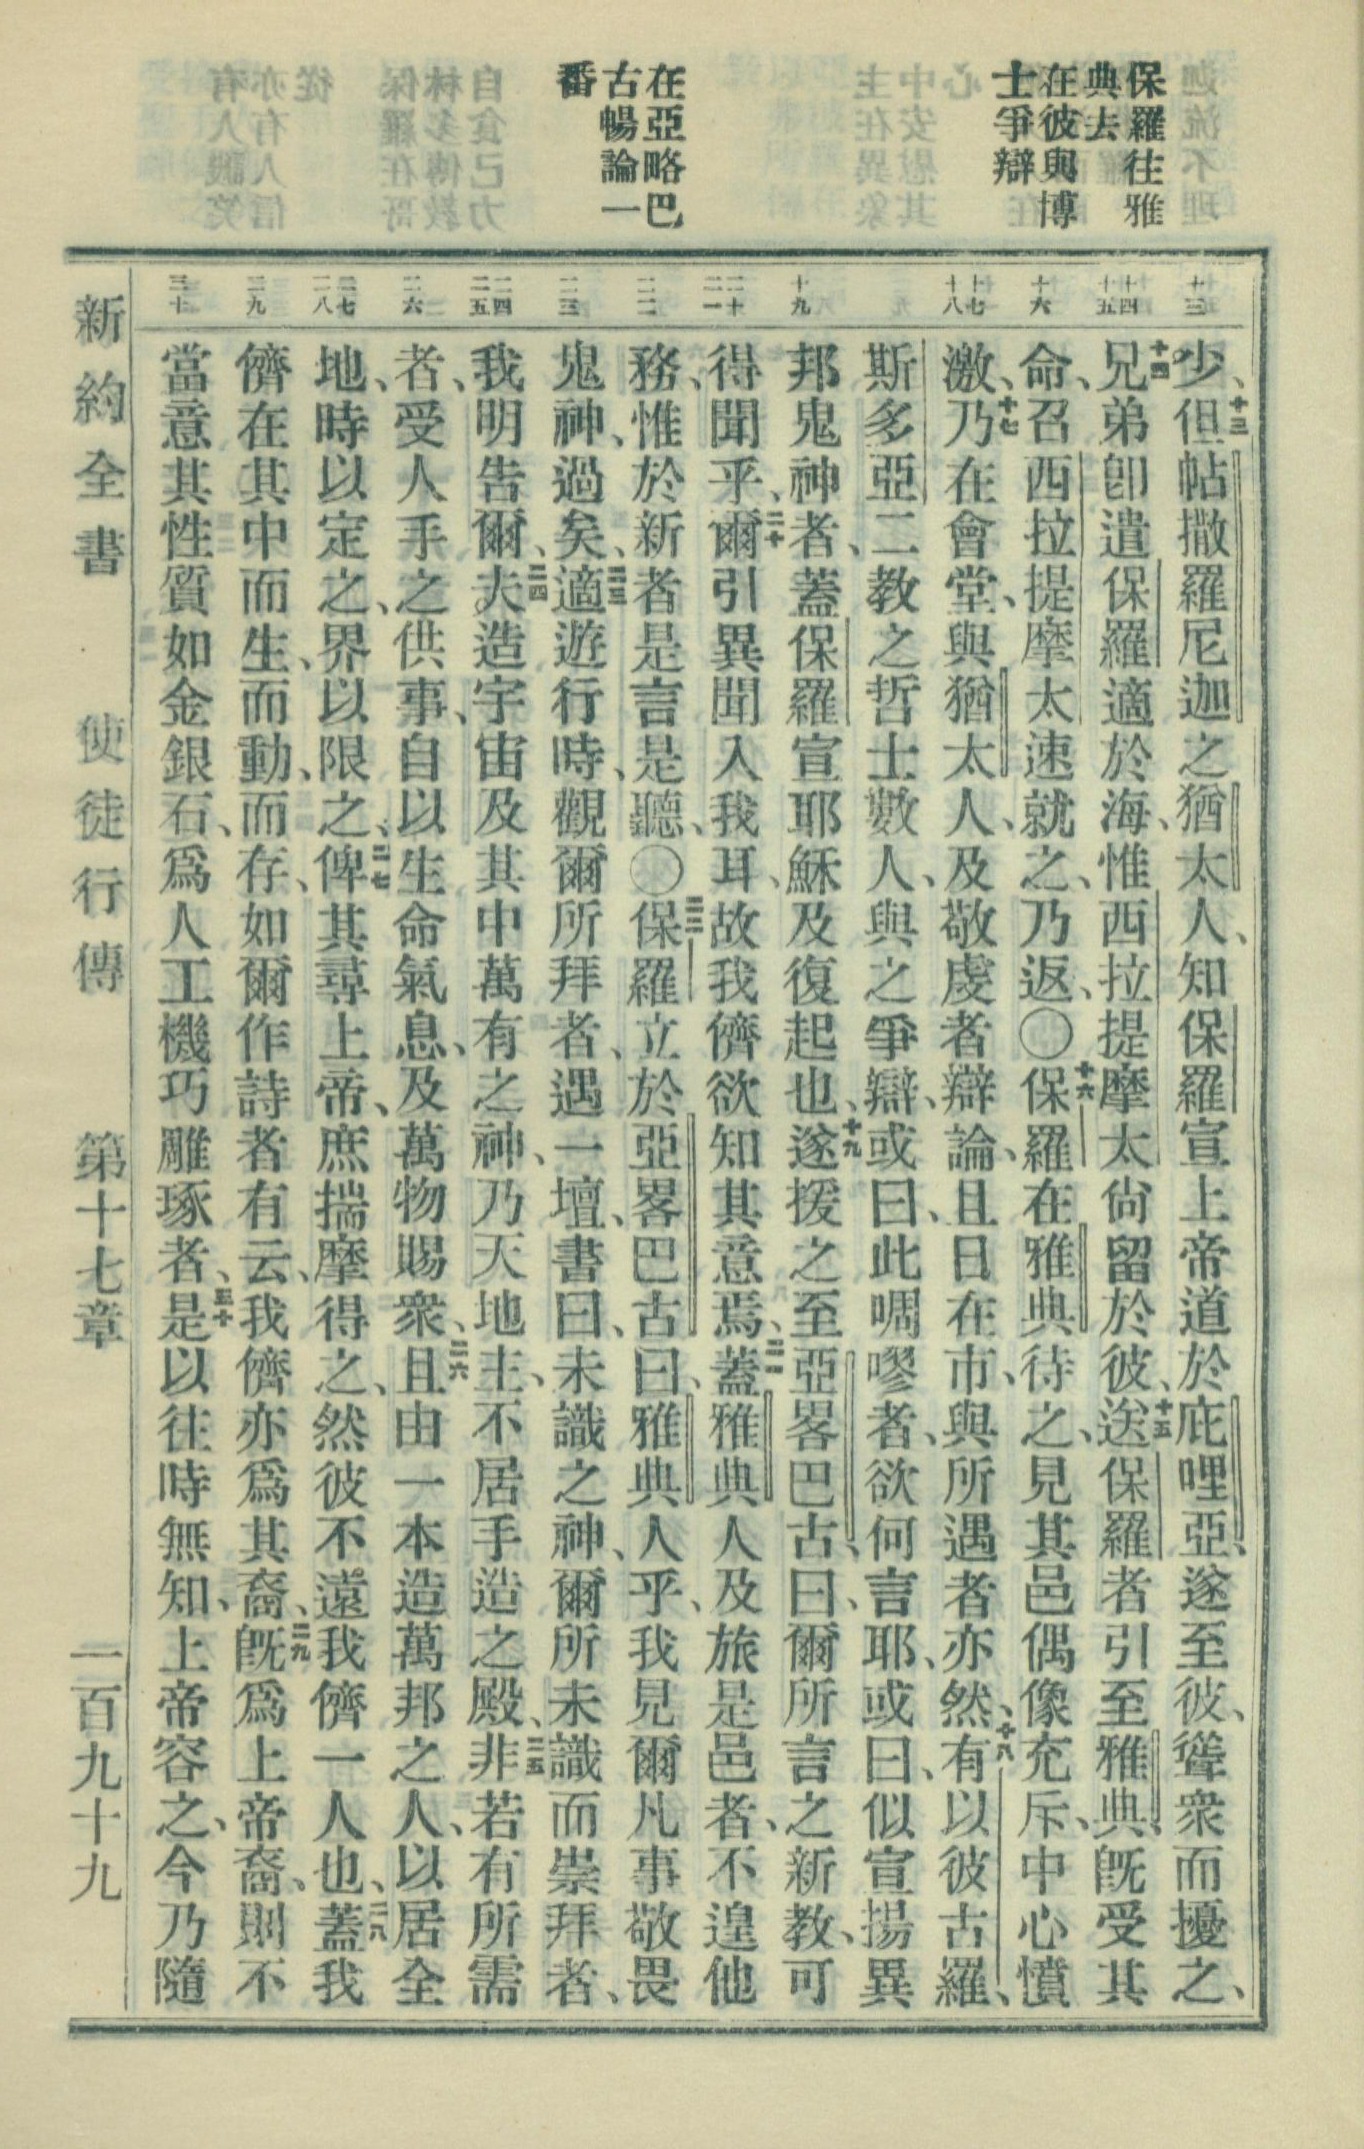 保羅往雅
典去
在彼與博
士爭辯
在亞略巴
古暢論一
番
十三
十四
十五
十六
十七
十八
十九
二十
二一
二二
二三
二四
二五
二六
二七
二八
二九
三十
少、十三但帖撒羅尼迦之猶太人、知保羅宣上帝道於庇哩亞、遂至彼、聳衆而擾之、
十四兄弟卽遣保羅適於海、惟西拉提摩太尙留於彼、十五送保羅者引至雅典、旣受其
命、召西拉提摩太速就之、乃返、〇十六保羅在雅典待之、見其邑偶像充斥、中心憤
激、十七乃在會堂、與猶太人、及敬虔者辯論、且日在市、與所遇者亦然、十八有以彼古羅、
斯多亞二教之哲士數人、與之爭辯、或曰、此啁嘐者、欲何言耶、或曰、似宣揚異
邦鬼神者、蓋保羅宣耶穌及復起也、十九遂援之至亞畧巴古、曰、爾所言之新教、可
得聞乎、二十爾引異聞入我耳、故我儕欲知其意焉、二一蓋雅典人及旅是邑者、不遑他
務、惟於新者是言是聽、〇二二保羅立於亞畧巴古曰、雅典人乎、我見爾凡事敬畏
鬼神、過矣、二三適遊行時、觀爾所拜者、遇一壇、書曰、未識之神、爾所未識而崇拜者、
我明告爾、二四夫造宇宙及其中萬有之神、乃天地主、不居手造之殿、二五非若有所需
者、受人手之供事、自以生命氣息、及萬物賜衆、二六且由一本造萬邦之人、以居全
地、時以定之、界以限之、二七俾其尋上帝、庶揣摩得之、然彼不遠我儕一人也、二八蓋我
儕在其中而生、而動、而存、如爾作詩者有云、我儕亦爲其裔、二九旣爲上帝裔、則不
當意其性質如金銀石、爲人工機巧雕琢者、三十是以往時無知、上帝容之、今乃隨
新約全書 使徒行傳 第十七章 一百九十九